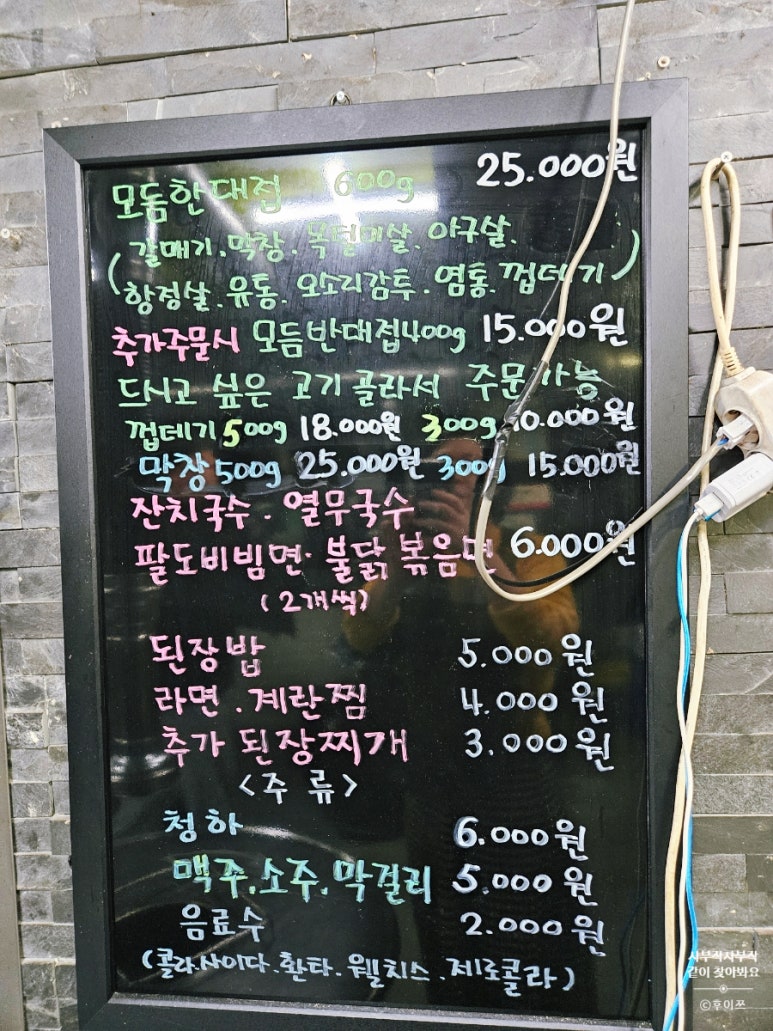 모둠한대접 600g 25.000원
(갈매기.막창.목덜미살.야구살.
항정살.유통.오소리감투.염통.껍데기)
추가주문시 모듬반대접400g 15.000원
드시고 싶은 고기 골라서 주문가능
껍데기 500g 18.000원 300g 10.000원
막창 500g 25.000원 300g 15.000원
잔치국수.열무국수
팔도비빔면.불닭볶음면 6.000원
(2개씩)
된장밥 5.000원
라면.계란찜 4.000원
추가 된장찌개 3.000원
<주류>
청하 6.000원
맥주.소주.막걸리 5.000원
음료수 2.000원
(콜라.사이다.환타.웰치스.제로콜라)
사부작사부작
같이 찾아봐요
©후이쯔